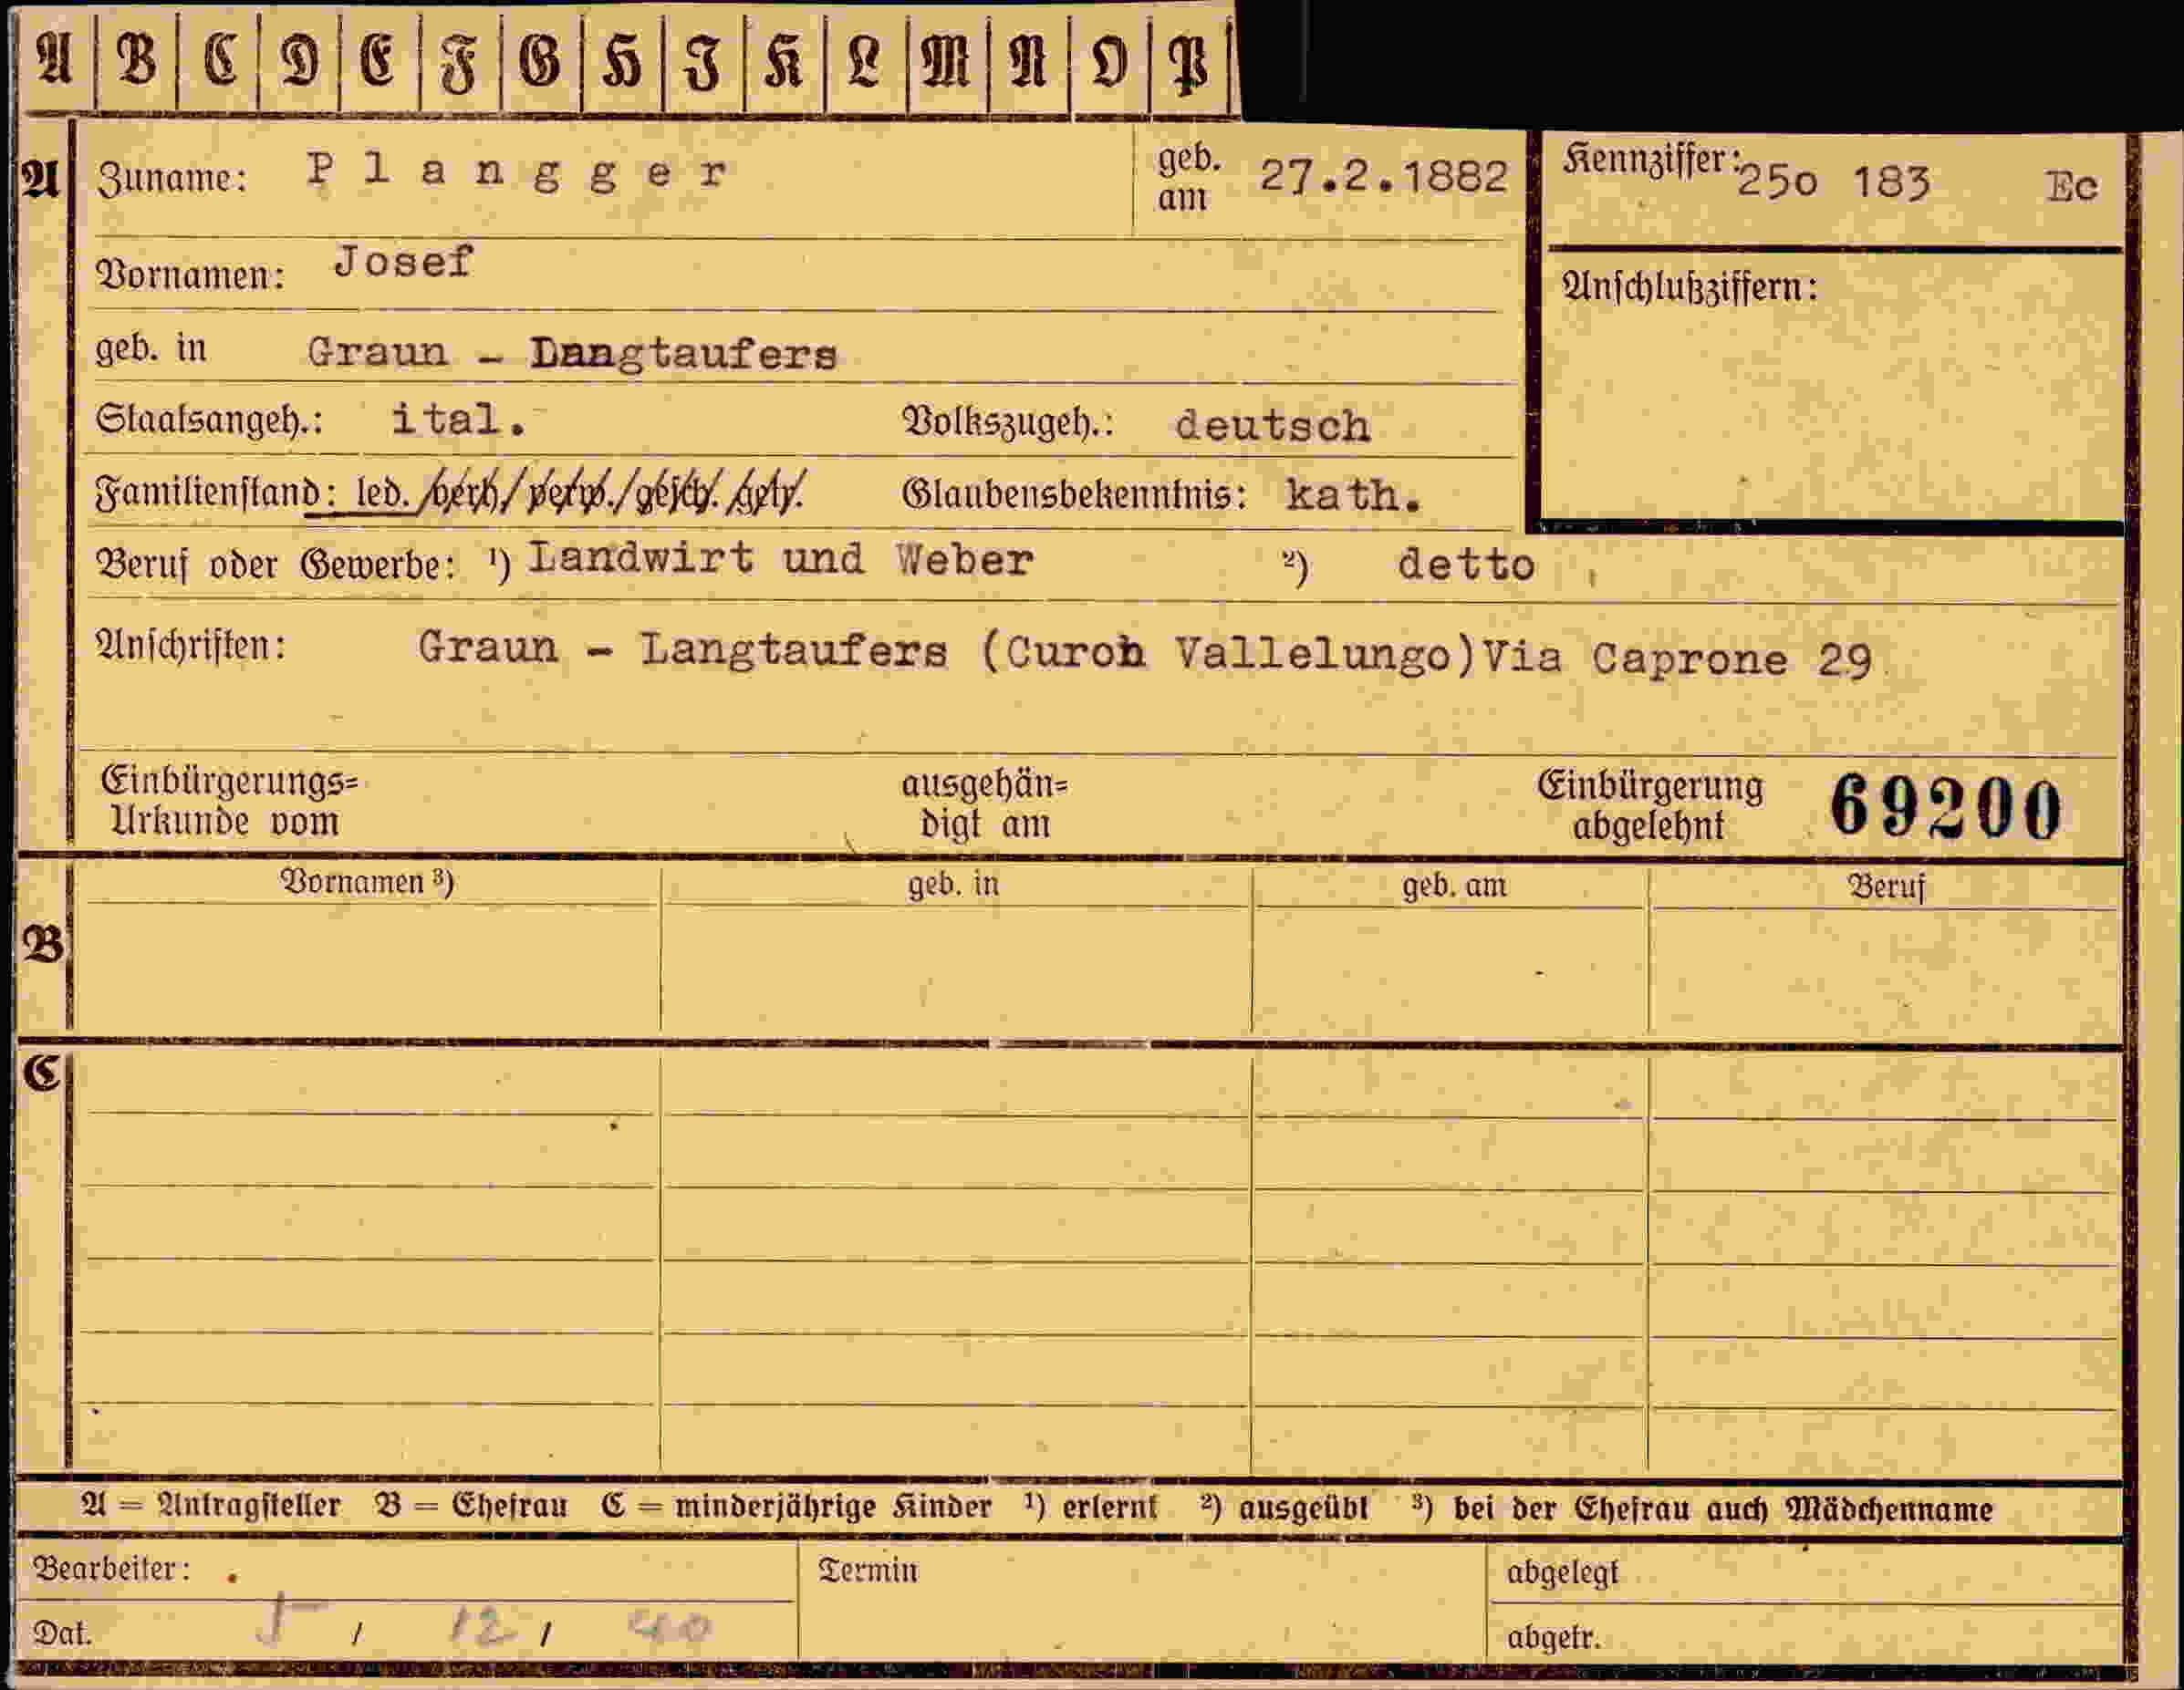 A B C D E F G H I K L M N O P
A Zuname: Plangger geb. am 27.2.1882 Kennziffer: 25o 183 Ec
Vornamen: Josef
Anschlußziffern:
geb. in Graun - Langtaufers
Staatsangeh.: ital. Volkszugeh.: deutsch
Familienstand: led. /verh/ verw./gesch./getr. Glaubensbekenntnis: kath.
Beruf oder Gewerbe: ¹) Landwirt und Weber ²) detto
Anschriften: Graun - Langtaufers (Curon Vallelungo)Via Caprone 29
Einbürgerungs= ausgehän= Einbürgerung 69200
Urkunde vom digt am abgelehnt
B Vornamen ³) geb. in geb. am Beruf
C
A = Antragsteller B = Ehefrau C = minderjährige Kinder ¹) erlernt ²) ausgeübt ³) bei der Ehefrau auch Mädchenname
Bearbeiter: Termin abgelegt
Dat. 5 / 12 / 40 abgetr.